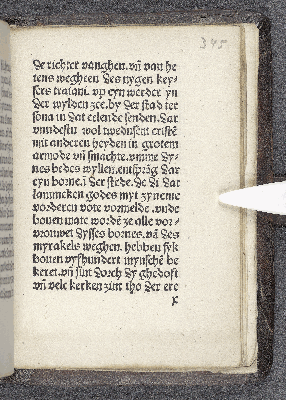 345
de richter vanghen. vñ van he
tens weghen des nygen key-
sers traiani. vp eyn werder yn
der wylden zee. by der stad ter
sona in dat elende senden. dar
vnndestu wol twedusent cristē
mit anderen heyden in grotem
armode vñ smachte. vmme dy-
nes bedes wyllen. entsprāg dar
eyn borne. ī der stede. de di dat
lammeken godes myt zyneme
vorderen vote vormelde. vnde
bouen mate wordē ze alle vor-
vrouwet dysses bornes. vā des
myrakels weghen. hebben syk
bouen vyfhundert mynschē be
keret. vñ sint dorch dy ghedoft
vñ velc kerken zint tho der ere